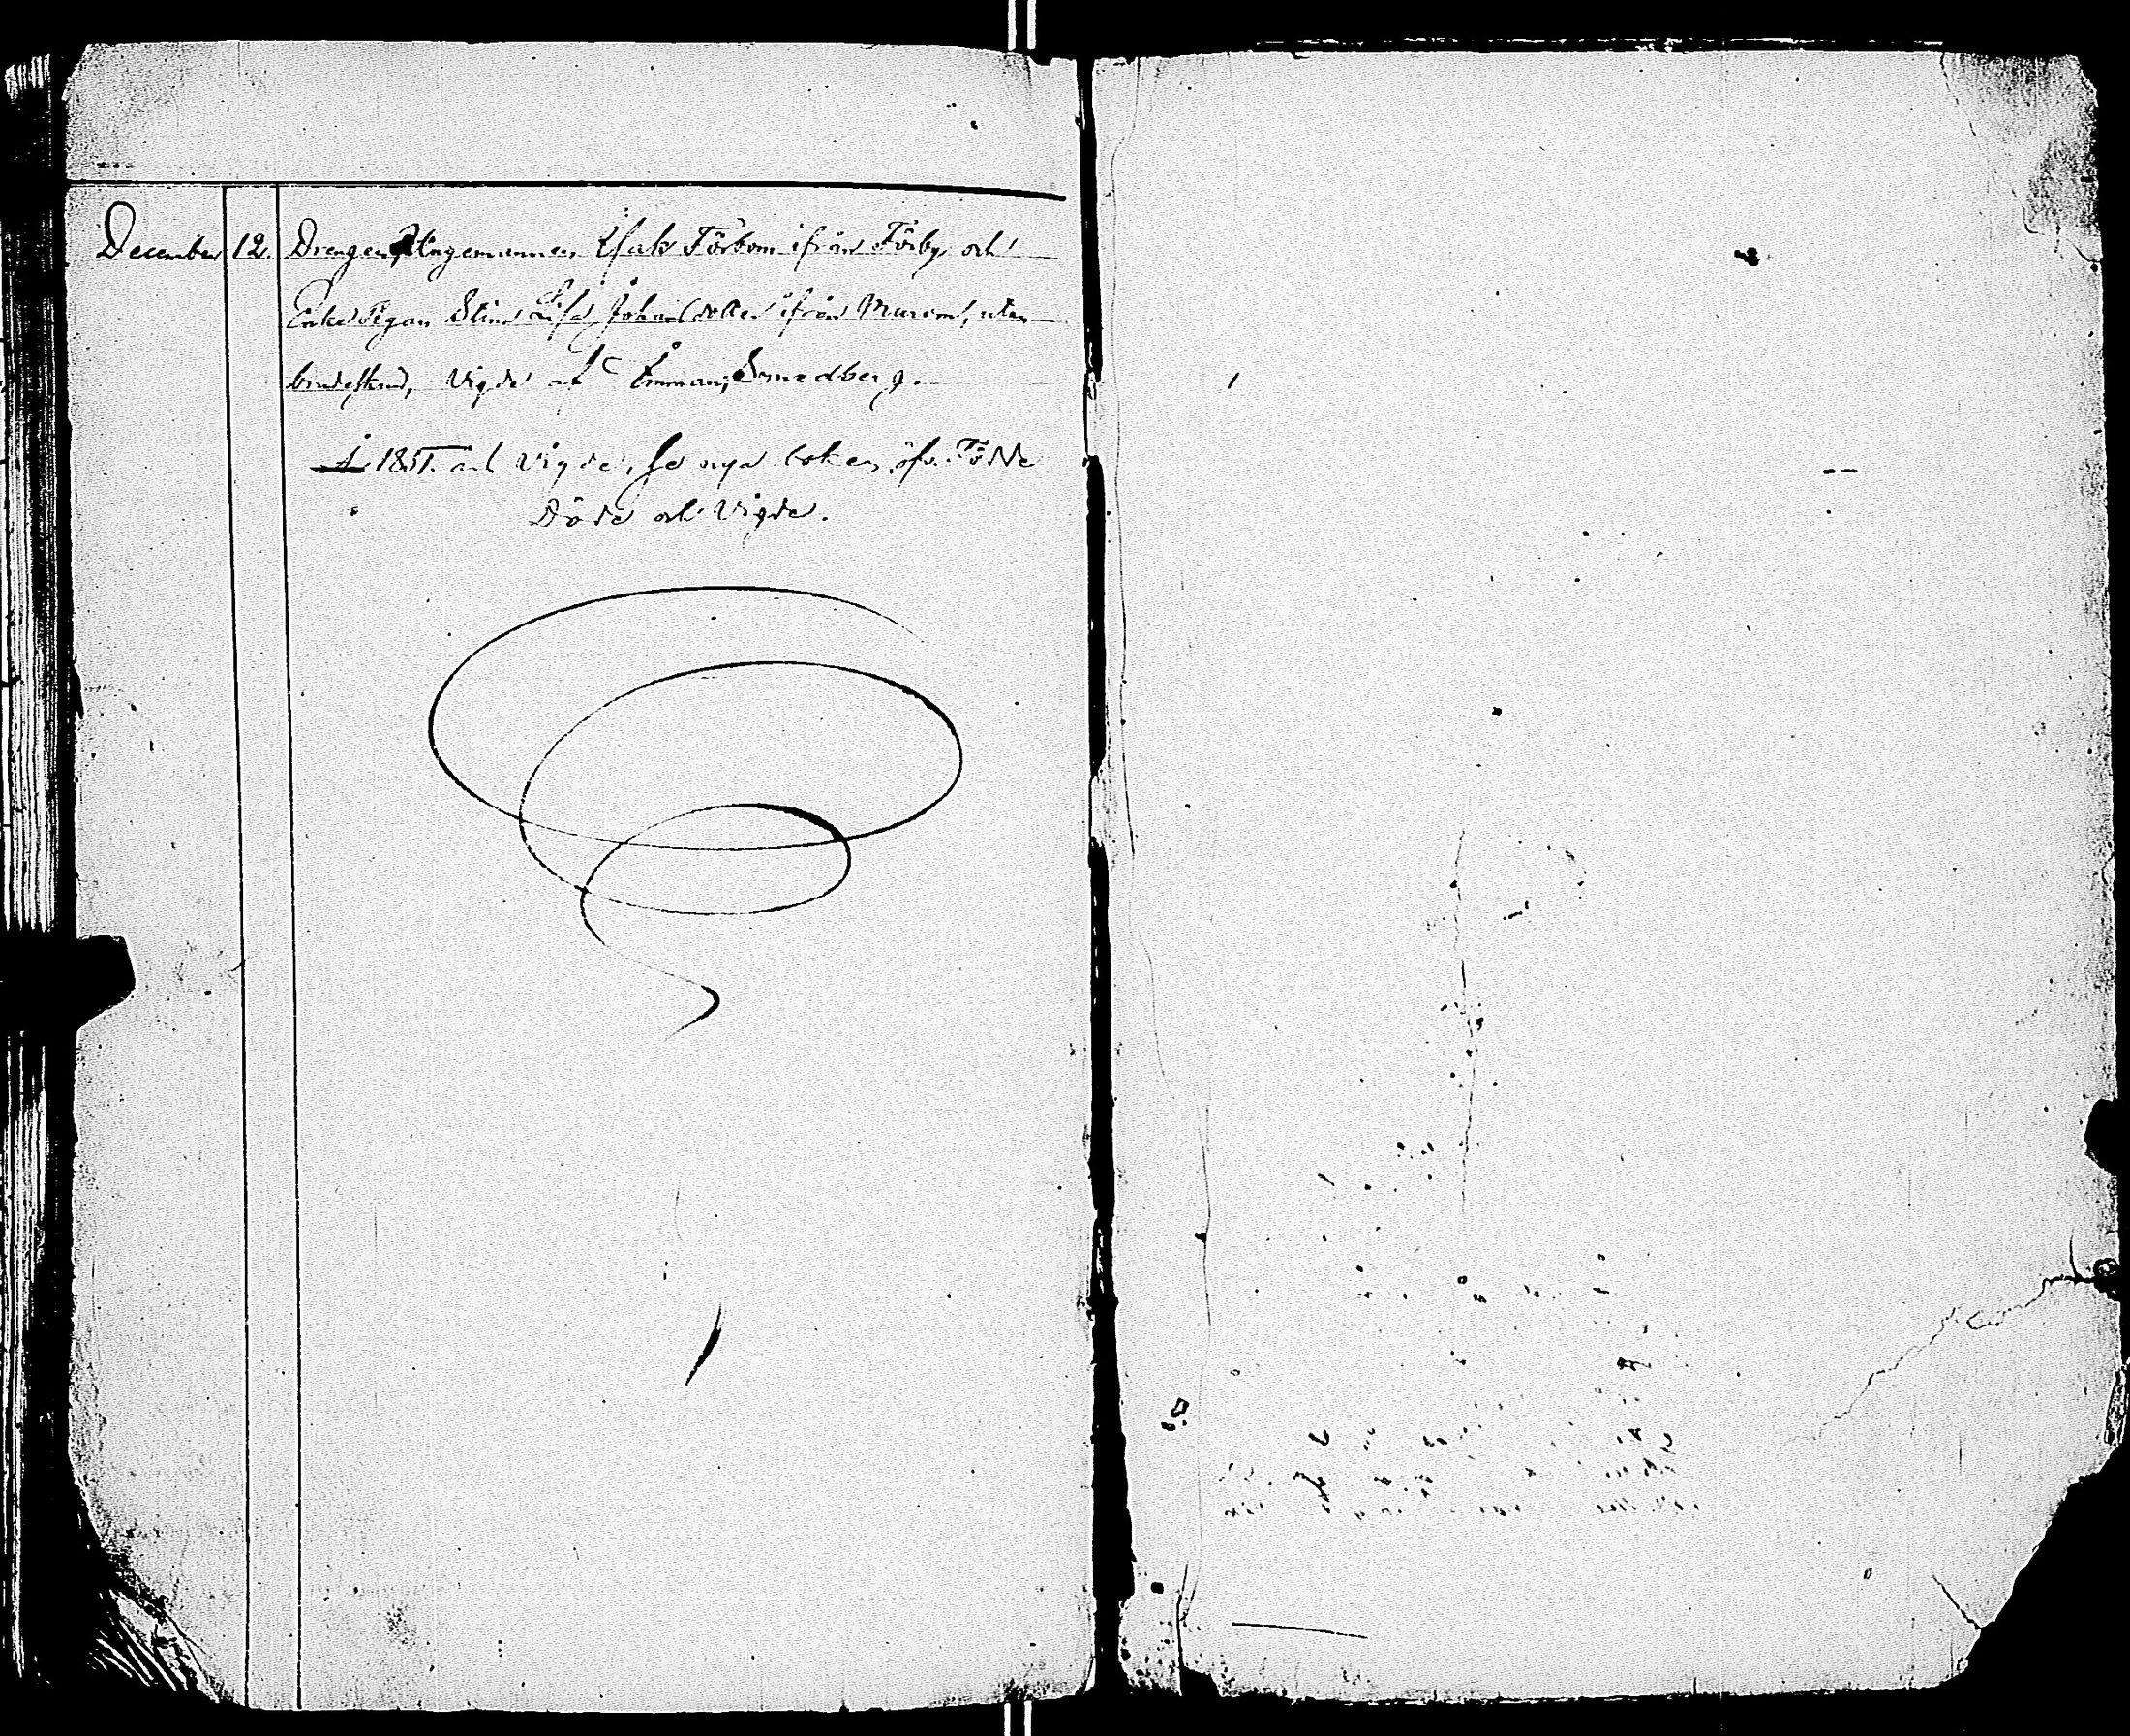 December 12. Drengen Ungemannen Isak Förbom ifrån Förby och
Enke Pigan Stina Lisa Johansdotter ifrån Murom, utan
Vigde af Emman; Smedberg.
1851. års Vigde, se nya boken öfv. Födde
Döde och Vigde.